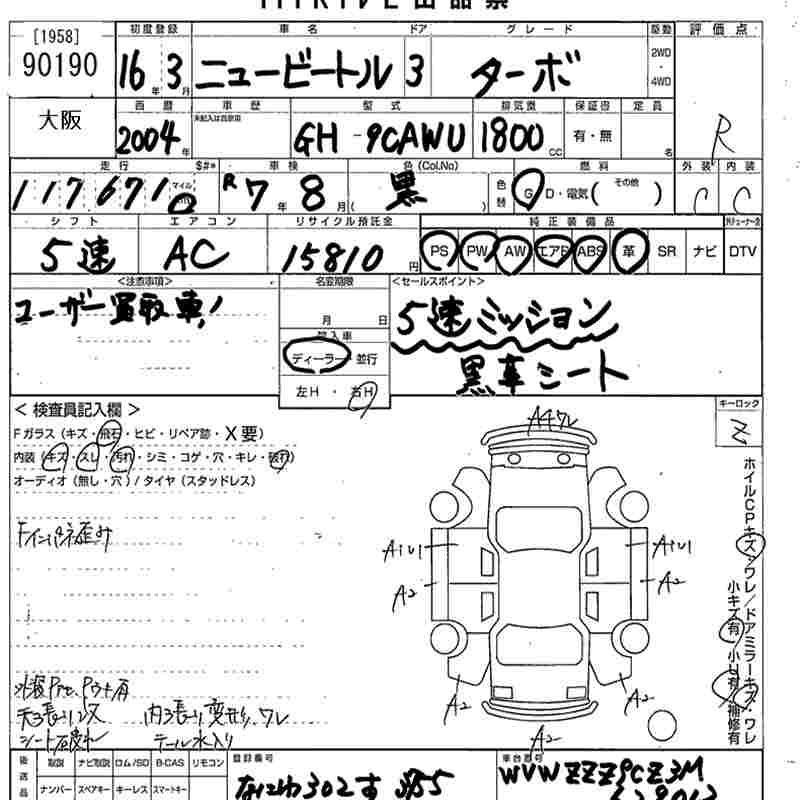 初度登録 車名 ドア グレード 駆動 評価点
[1958]
90190
16年 3月 ニュービートル 3 ターボ
2WD
・
4WD
R
大阪
西暦 車歴 型式 排気量 保証書 定員
未記入は自家用
2004年 GH-9CAWU 1800CC 有・無
走行 $#* 車検 色(Col.No) 燃料 外装 内装
117671 マイル R7年 8月 黒 ( ) 色替 G D・電気( その他 ) C C
シフト エアコン リサイクル預託金 純正装備品
5速 AC 15810円 PS PW AW エアB ABS 革 SR ナビ DTV
<注意事項> 名変期限 <セールスポイント>
ユーザー買取車!
月 日
5速ミッション
輸入車
ディーラー・並行
黒革シート
左H・右H
<検査員記入欄>
Fガラス(キズ・飛石・ヒビ・リペア跡・X要)
内装(キズ・スレ・汚れ・シミ・コゲ・穴・キレ・破れ)
オーディオ(無し・穴)/タイヤ(スタッドレス)
キーロック
Z
A4ワレ
A1U1 A1U1
A2 A2
A2 A2
A2
ホイルCPキズ・ワレ/ドアミラーキズ・ワレ
小キズ有・小U有・補修有
天張り
内張り変形、ワレ
テール水入り
後送品 取説 ナビ取説 ロム/SD B-CAS リモコン
ナンバー スペアキー キーレス スマートキー
登録番号
なにわ302す
車台番号
WVWZZZ9CZ3M